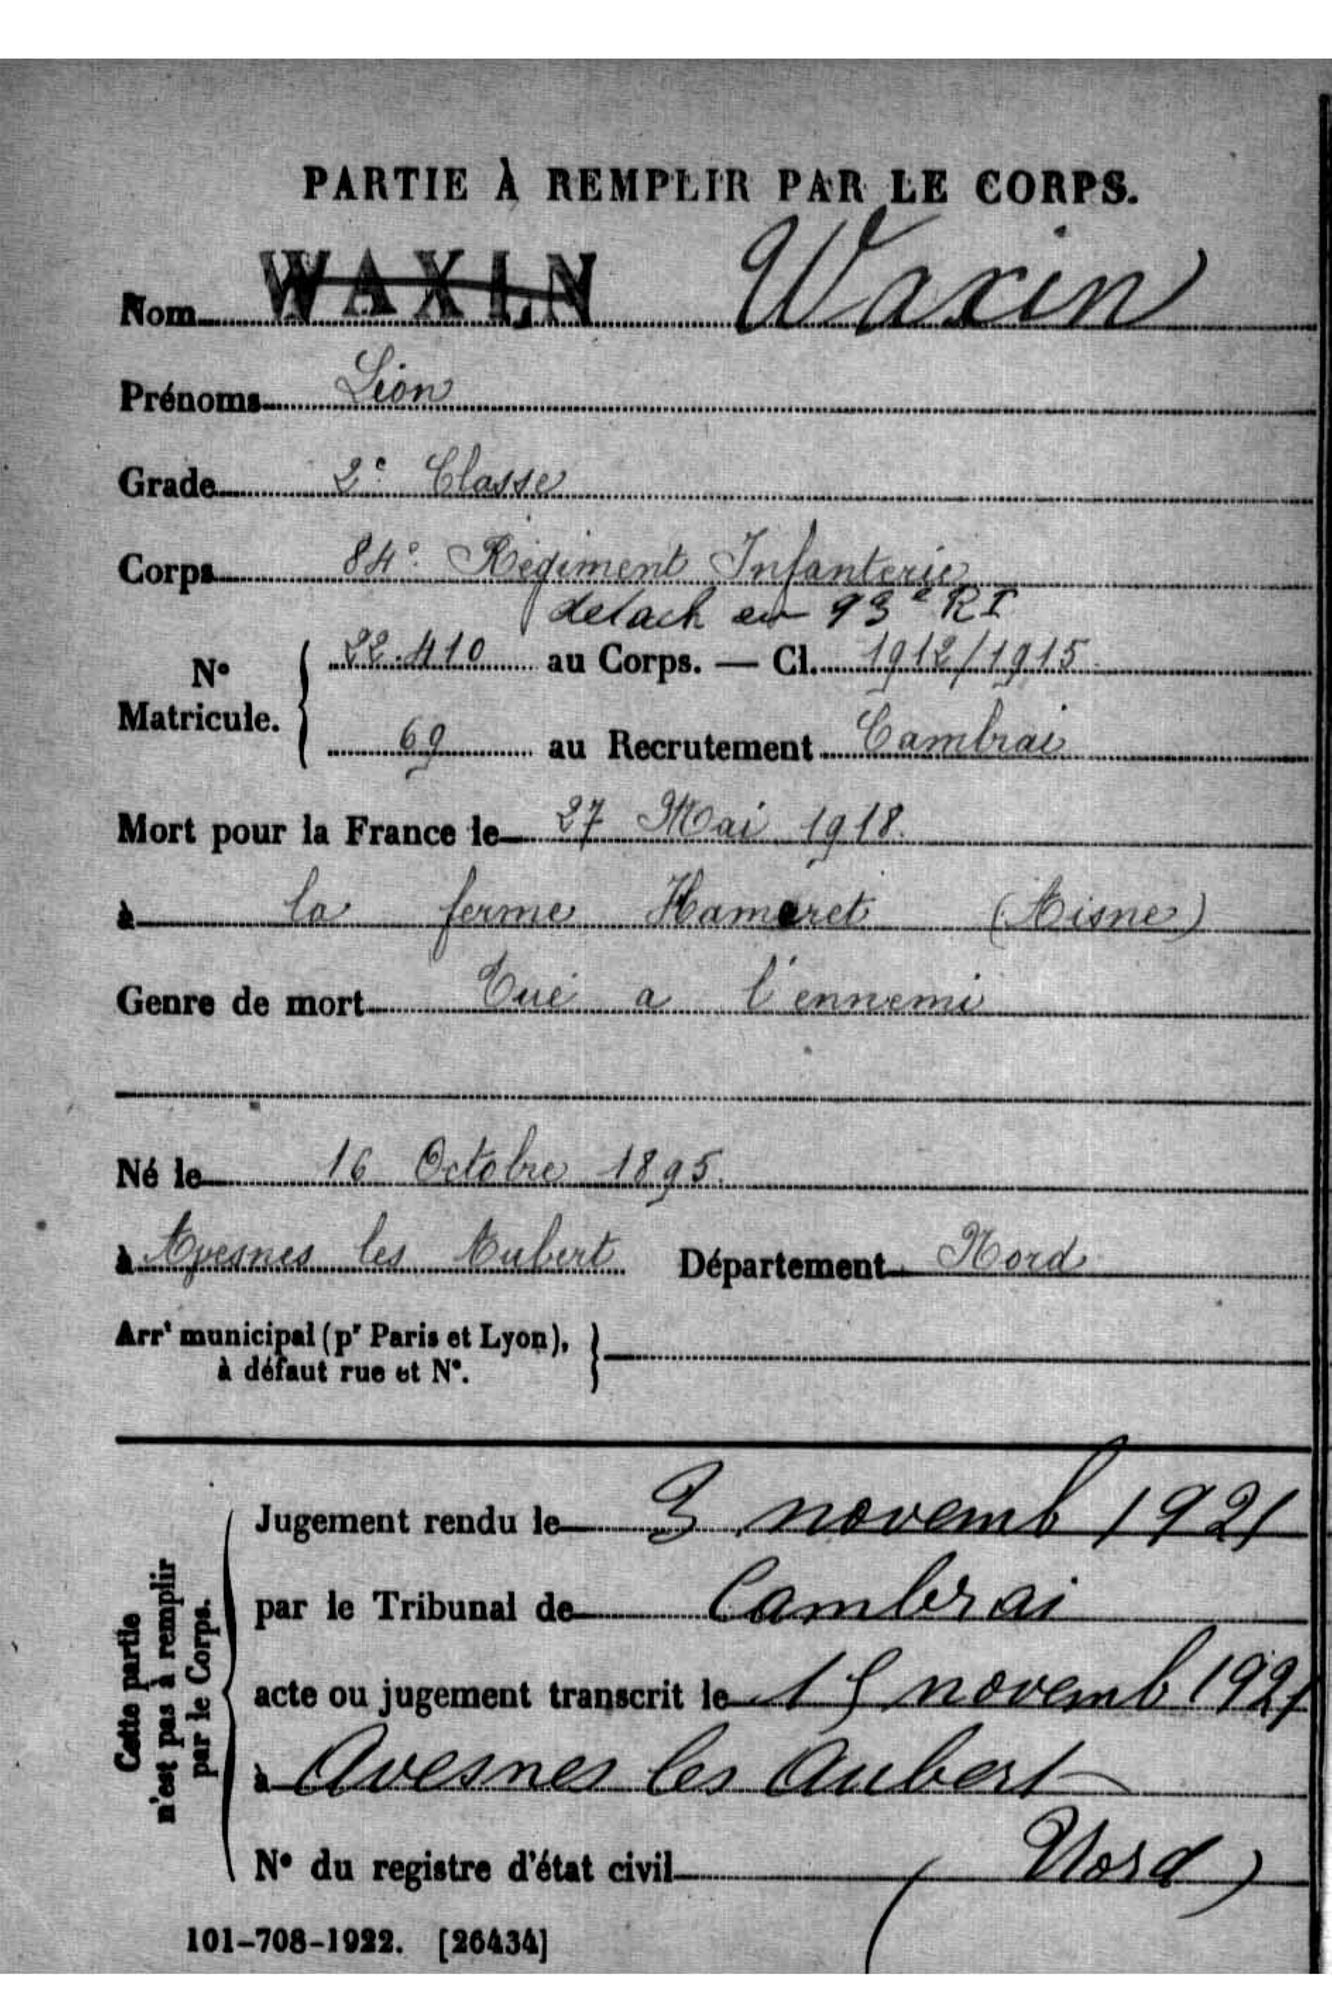 PARTIE À REMPLIR PAR LE CORPS.
Nom WAXIN Waxin
Prénoms Léon
Grade 2e Classe
Corps 84e Régiment Infanterie
détach au 93e RI
N° Matricule. { 22.410 au Corps. — Cl. 1912/1915
69 au Recrutement Cambrai
Mort pour la France le 27 Mai 1918.
à la ferme Hameret (Aisne)
Genre de mort Tué a l'ennemi
Né le 16 Octobre 1895.
à Avesnes les Aubert Département Nord
Arrt municipal (pr Paris et Lyon), }
à défaut rue et N°.
Cette partie
n'est pas à remplir
par le Corps.
Jugement rendu le 3 novemb 1921
par le Tribunal de Cambrai
acte ou jugement transcrit le 15 novemb 1921
à Avesnes les Aubert
N° du registre d'état civil (Nord)
101-708-1922. [26434]